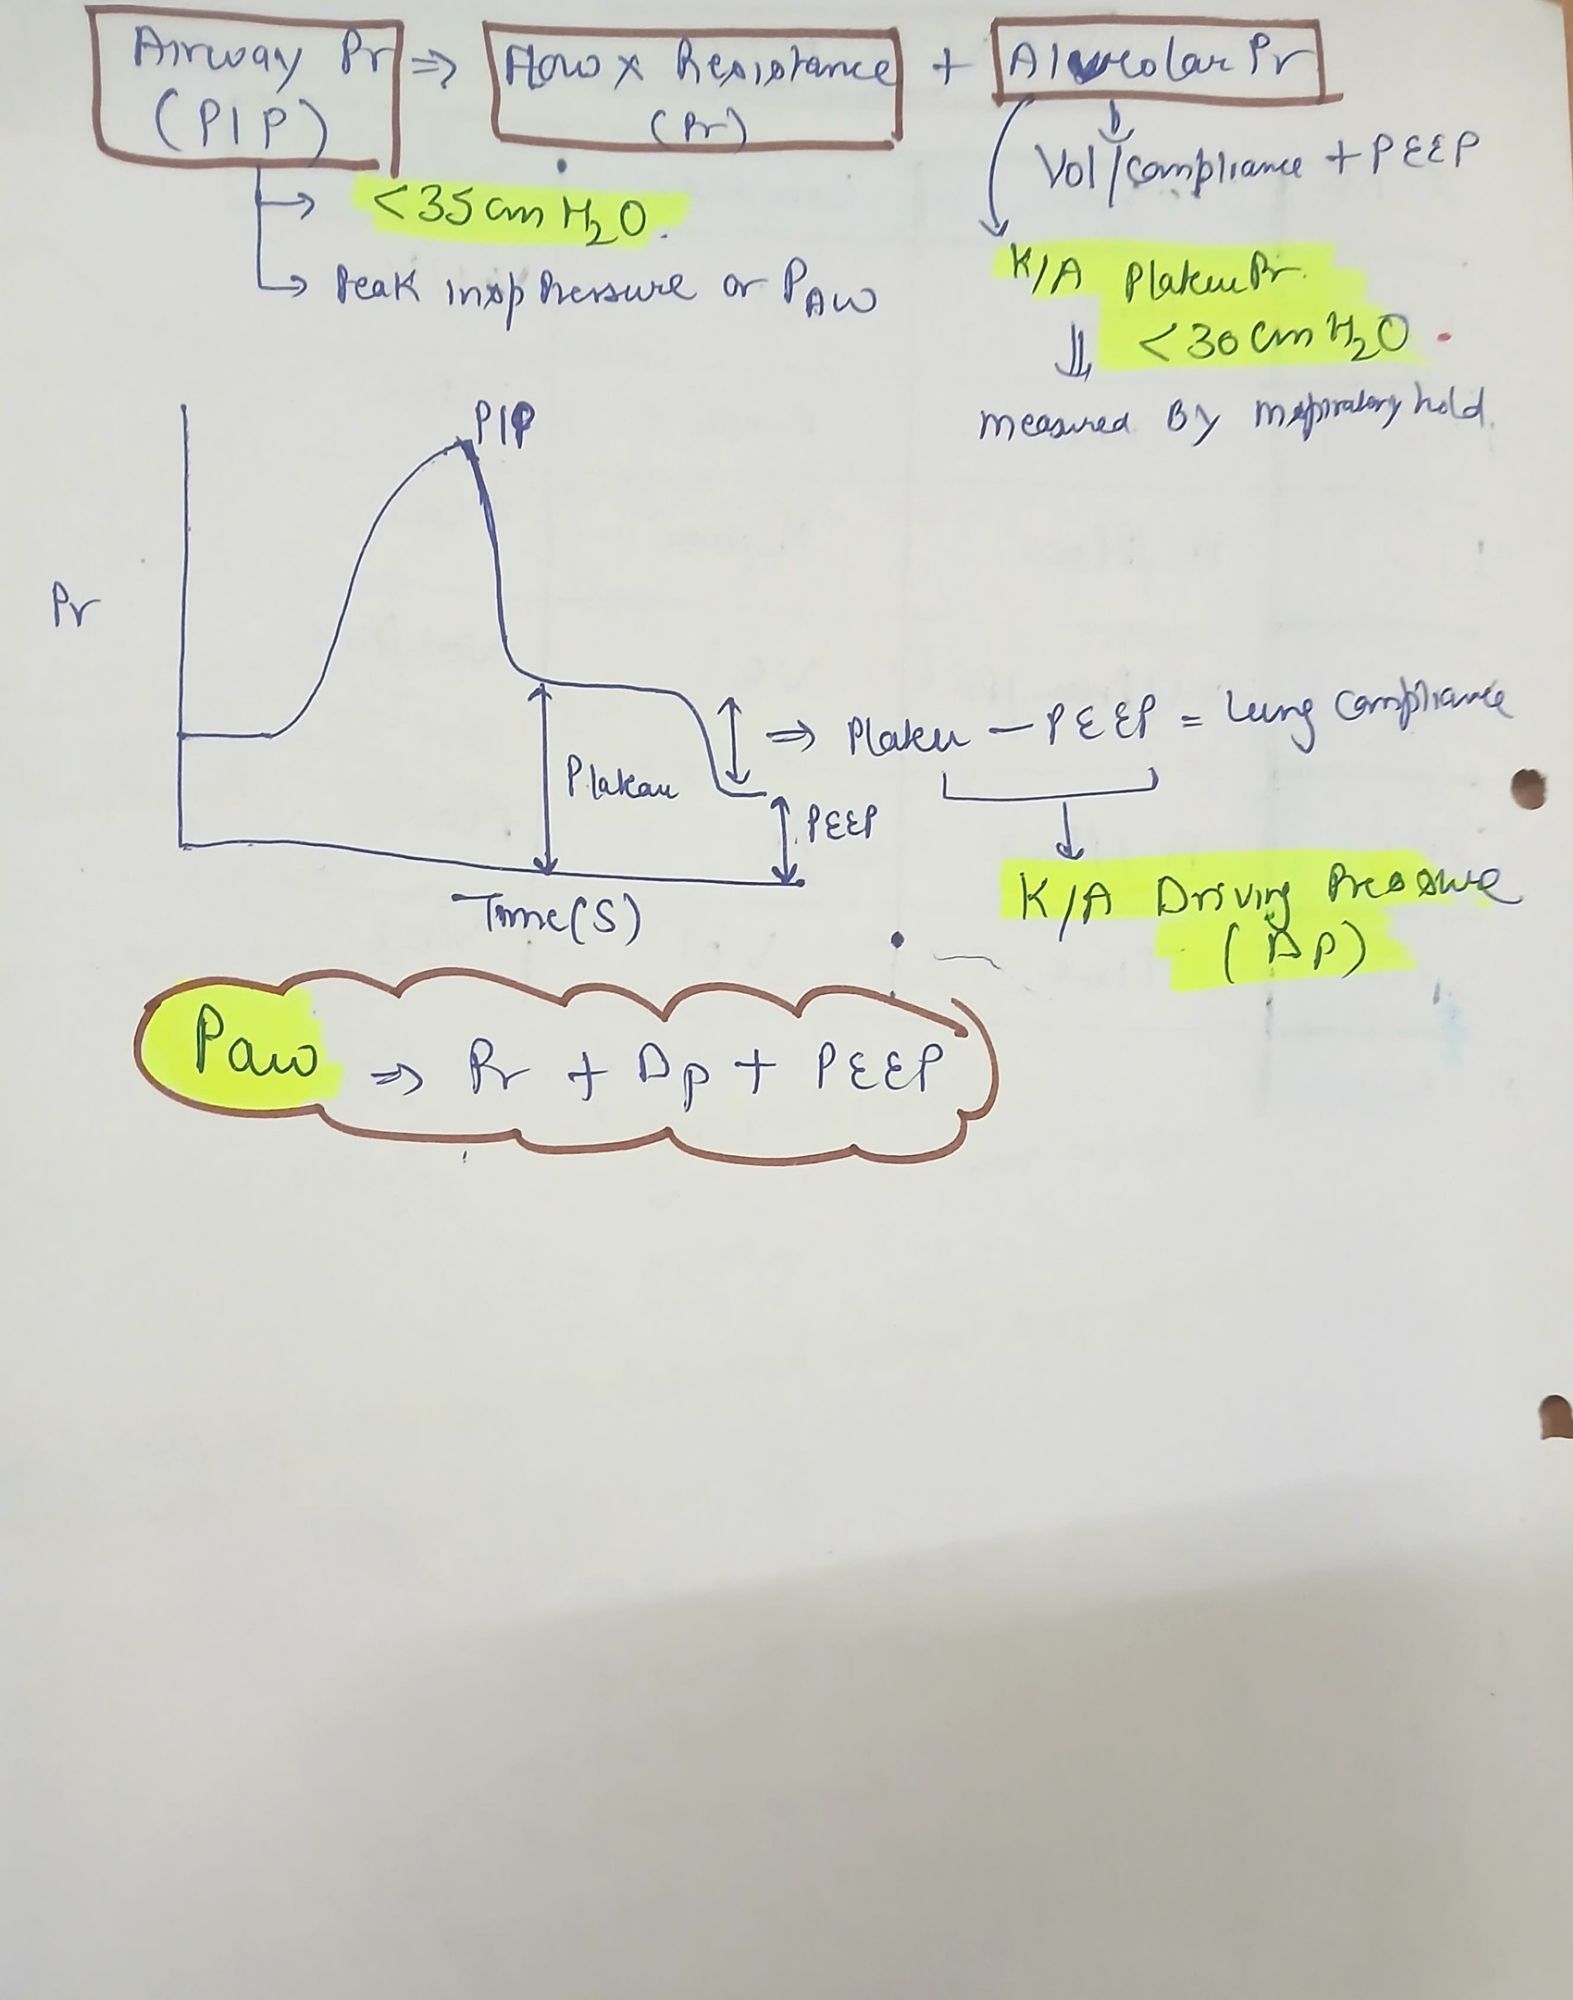 Airway Pr ⇒ Flow x Resistance + Alveolar Pr
(PIP) (Pr)
Vol/compliance + PEEP
→ <35 cm H2O.
K/A Plateu Pr.
→ Peak insp Pressure or PAW
<30 cm H2O
measured By inspiratory hold.
PIP
Pr
⇒ Plateu - PEEP = Lung Compliance
Plateau
PEEP
K/A Driving Pressure
(Δp)
Time(S)
Paw ⇒ Pr + Δp + PEEP